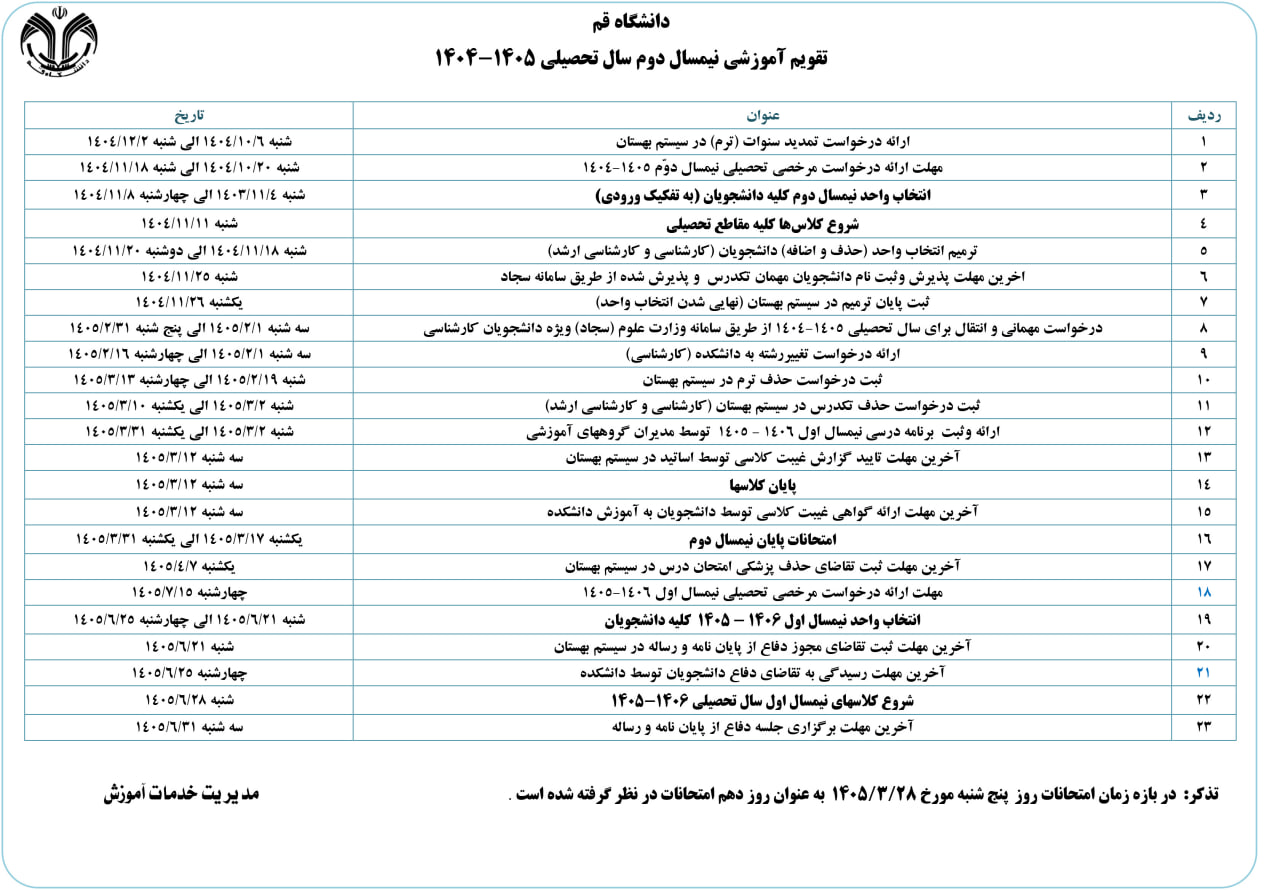 دانشگاه قم
تقویم آموزشی نیمسال دوم سال تحصیلی ۱۴۰۵-۱۴۰۴
ردیف عنوان تاریخ
۱ ارائه درخواست تمدید سنوات (ترم) در سیستم بهستان شنبه ۱۴۰۴/۱۰/۶ الی شنبه ۱۴۰۴/۱۲/۲
۲ مهلت ارائه درخواست مرخصی تحصیلی نیمسال دوّم ۱۴۰۵-۱۴۰۴ شنبه ۱۴۰۴/۱۰/۲۰ الی شنبه ۱۴۰۴/۱۱/۱۸
۳ انتخاب واحد نیمسال دوم کلیه دانشجویان (به تفکیک ورودی) شنبه ۱۴۰۳/۱۱/۴ الی چهارشنبه ۱۴۰۴/۱۱/۸
۴ شروع کلاس‌ها کلیه مقاطع تحصیلی شنبه ۱۴۰۴/۱۱/۱۱
۵ ترمیم انتخاب واحد (حذف و اضافه) دانشجویان (کارشناسی و کارشناسی ارشد) شنبه ۱۴۰۴/۱۱/۱۸ الی دوشنبه ۱۴۰۴/۱۱/۲۰
۶ اخرین مهلت پذیرش وثبت نام دانشجویان مهمان تکدرس و پذیرش شده از طریق سامانه سجاد شنبه ۱۴۰۴/۱۱/۲۵
۷ ثبت پایان ترمیم در سیستم بهستان (نهایی شدن انتخاب واحد) یکشنبه ۱۴۰۴/۱۱/۲۶
۸ درخواست مهمانی و انتقال برای سال تحصیلی ۱۴۰۵-۱۴۰۴ از طریق سامانه وزارت علوم (سجاد) ویژه دانشجویان کارشناسی سه شنبه ۱۴۰۵/۲/۱ الی پنج شنبه ۱۴۰۵/۲/۳۱
۹ ارائه درخواست تغییررشته به دانشکده (کارشناسی) سه شنبه ۱۴۰۵/۲/۱ الی چهارشنبه ۱۴۰۵/۲/۱۶
۱۰ ثبت درخواست حذف ترم در سیستم بهستان شنبه ۱۴۰۵/۲/۱۹ الی چهارشنبه ۱۴۰۵/۳/۱۳
۱۱ ثبت درخواست حذف تکدرس در سیستم بهستان (کارشناسی و کارشناسی ارشد) شنبه ۱۴۰۵/۳/۲ الی یکشنبه ۱۴۰۵/۳/۱۰
۱۲ ارائه وثبت برنامه درسی نیمسال اول ۱۴۰۶ - ۱۴۰۵ توسط مدیران گروههای آموزشی شنبه ۱۴۰۵/۳/۲ الی یکشنبه ۱۴۰۵/۳/۳۱
۱۳ آخرین مهلت تایید گزارش غیبت کلاسی توسط اساتید در سیستم بهستان سه شنبه ۱۴۰۵/۳/۱۲
۱۴ پایان کلاسها سه شنبه ۱۴۰۵/۳/۱۲
۱۵ آخرین مهلت ارائه گواهی غیبت کلاسی توسط دانشجویان به آموزش دانشکده سه شنبه ۱۴۰۵/۳/۱۲
۱۶ امتحانات پایان نیمسال دوم یکشنبه ۱۴۰۵/۳/۱۷ الی یکشنبه ۱۴۰۵/۳/۳۱
۱۷ آخرین مهلت ثبت تقاضای حذف پزشکی امتحان درس در سیستم بهستان یکشنبه ۱۴۰۵/۴/۷
۱۸ مهلت ارائه درخواست مرخصی تحصیلی نیمسال اول ۱۴۰۶-۱۴۰۵ چهارشنبه ۱۴۰۵/۷/۱۵
۱۹ انتخاب واحد نیمسال اول ۱۴۰۶ - ۱۴۰۵ کلیه دانشجویان شنبه ۱۴۰۵/۶/۲۱ الی چهارشنبه ۱۴۰۵/۶/۲۵
۲۰ آخرین مهلت ثبت تقاضای مجوز دفاع از پایان نامه و رساله در سیستم بهستان شنبه ۱۴۰۵/۶/۲۱
۲۱ آخرین مهلت رسیدگی به تقاضای دفاع دانشجویان توسط دانشکده چهارشنبه ۱۴۰۵/۶/۲۵
۲۲ شروع کلاسهای نیمسال اول سال تحصیلی ۱۴۰۶-۱۴۰۵ شنبه ۱۴۰۵/۶/۲۸
۲۳ آخرین مهلت برگزاری جلسه دفاع از پایان نامه و رساله سه شنبه ۱۴۰۵/۶/۳۱
تذکر: در بازه زمان امتحانات روز پنج شنبه مورخ ۱۴۰۵/۳/۲۸ به عنوان روز دهم امتحانات در نظر گرفته شده است . مدیریت خدمات آموزش